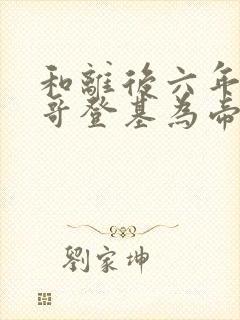 和離後六年
哥登基為帝
劉家坤